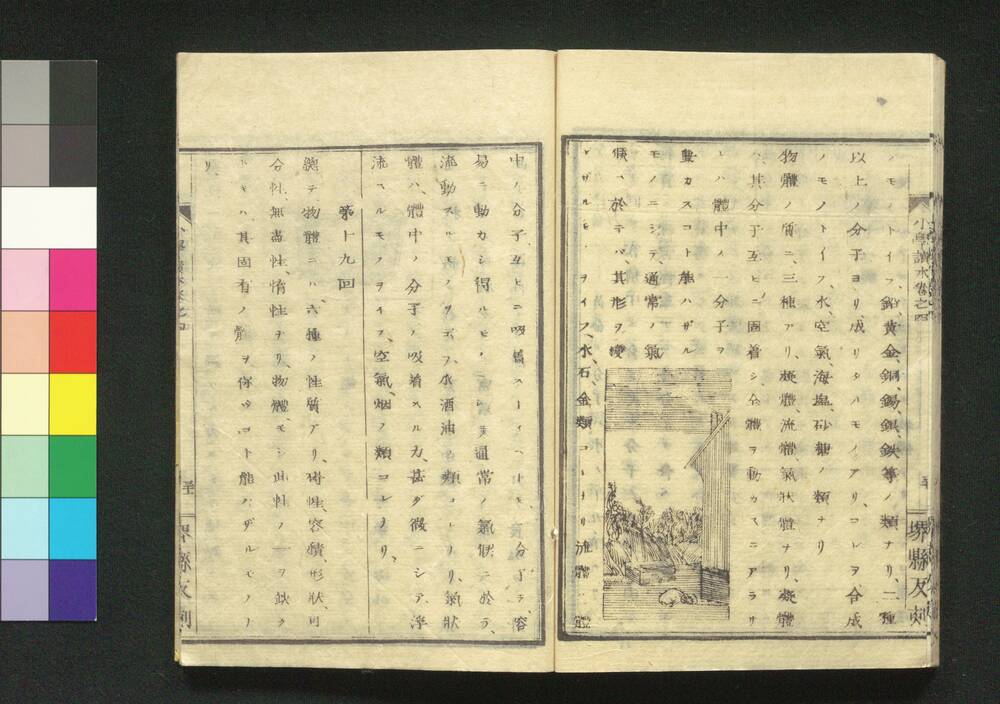 ノモノトイフ、鉛、黄金、銅、錫、銀、鉄等ノ類ナリ、二種
以上ノ分子ヨリ、成リタルモノアリ、コレヲ合成
ノモノトイフ、水、空氣、海塩、砂糖ノ類ナリ
物體ノ質ニ、三種アリ、凝體、流體、氣状體ナリ、凝體
ハ、其分子互ヒニ固着シ、全體ヲ動カスニアラザ
レハ體中ノ一分子ヲ
動カスコト能ハザル
モノニシテ、通常ノ氣
候ニ於テハ其形ヲ變
ゼザルモノヲイフ、木、石、金類コレナリ、流體ハ體
中ノ分子、互ヒニ吸着ストイヘトモ、分子ヲ、容
易ニ動カシ得ルモノニシテ通常ノ氣候ニ於テ、
流動スルモノヲイフ、水酒油ノ類コレナリ、氣状
體ハ、體中ノ分子ノ吸着スル力、甚ダ微ニシテ、浮
流スルモノヲイフ、空氣、烟ノ類コレナリ、
第十九回
總テ物體ニハ、六種ノ性質アリ、碍性、容積、形状、可
分性、無盡性、惰性ナリ、物體モシ此性ノ一ヲ欠ク
トキハ、其固有ノ體ヲ保ツコト能ハザルモノナ
リ、
小學讀本卷之四
堺縣反刻
小學讀本卷之四
堺縣反刻